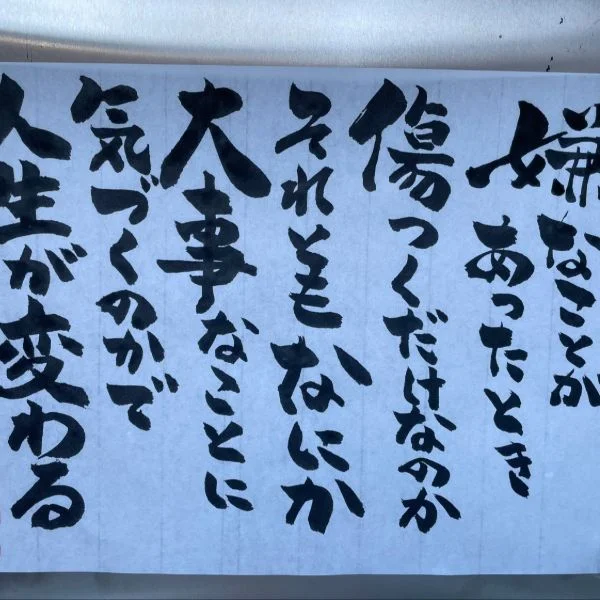 嫌なことが
あったとき
傷つくだけなのか
それともなにか
大事なことに
気づくのかで
人生が変わる